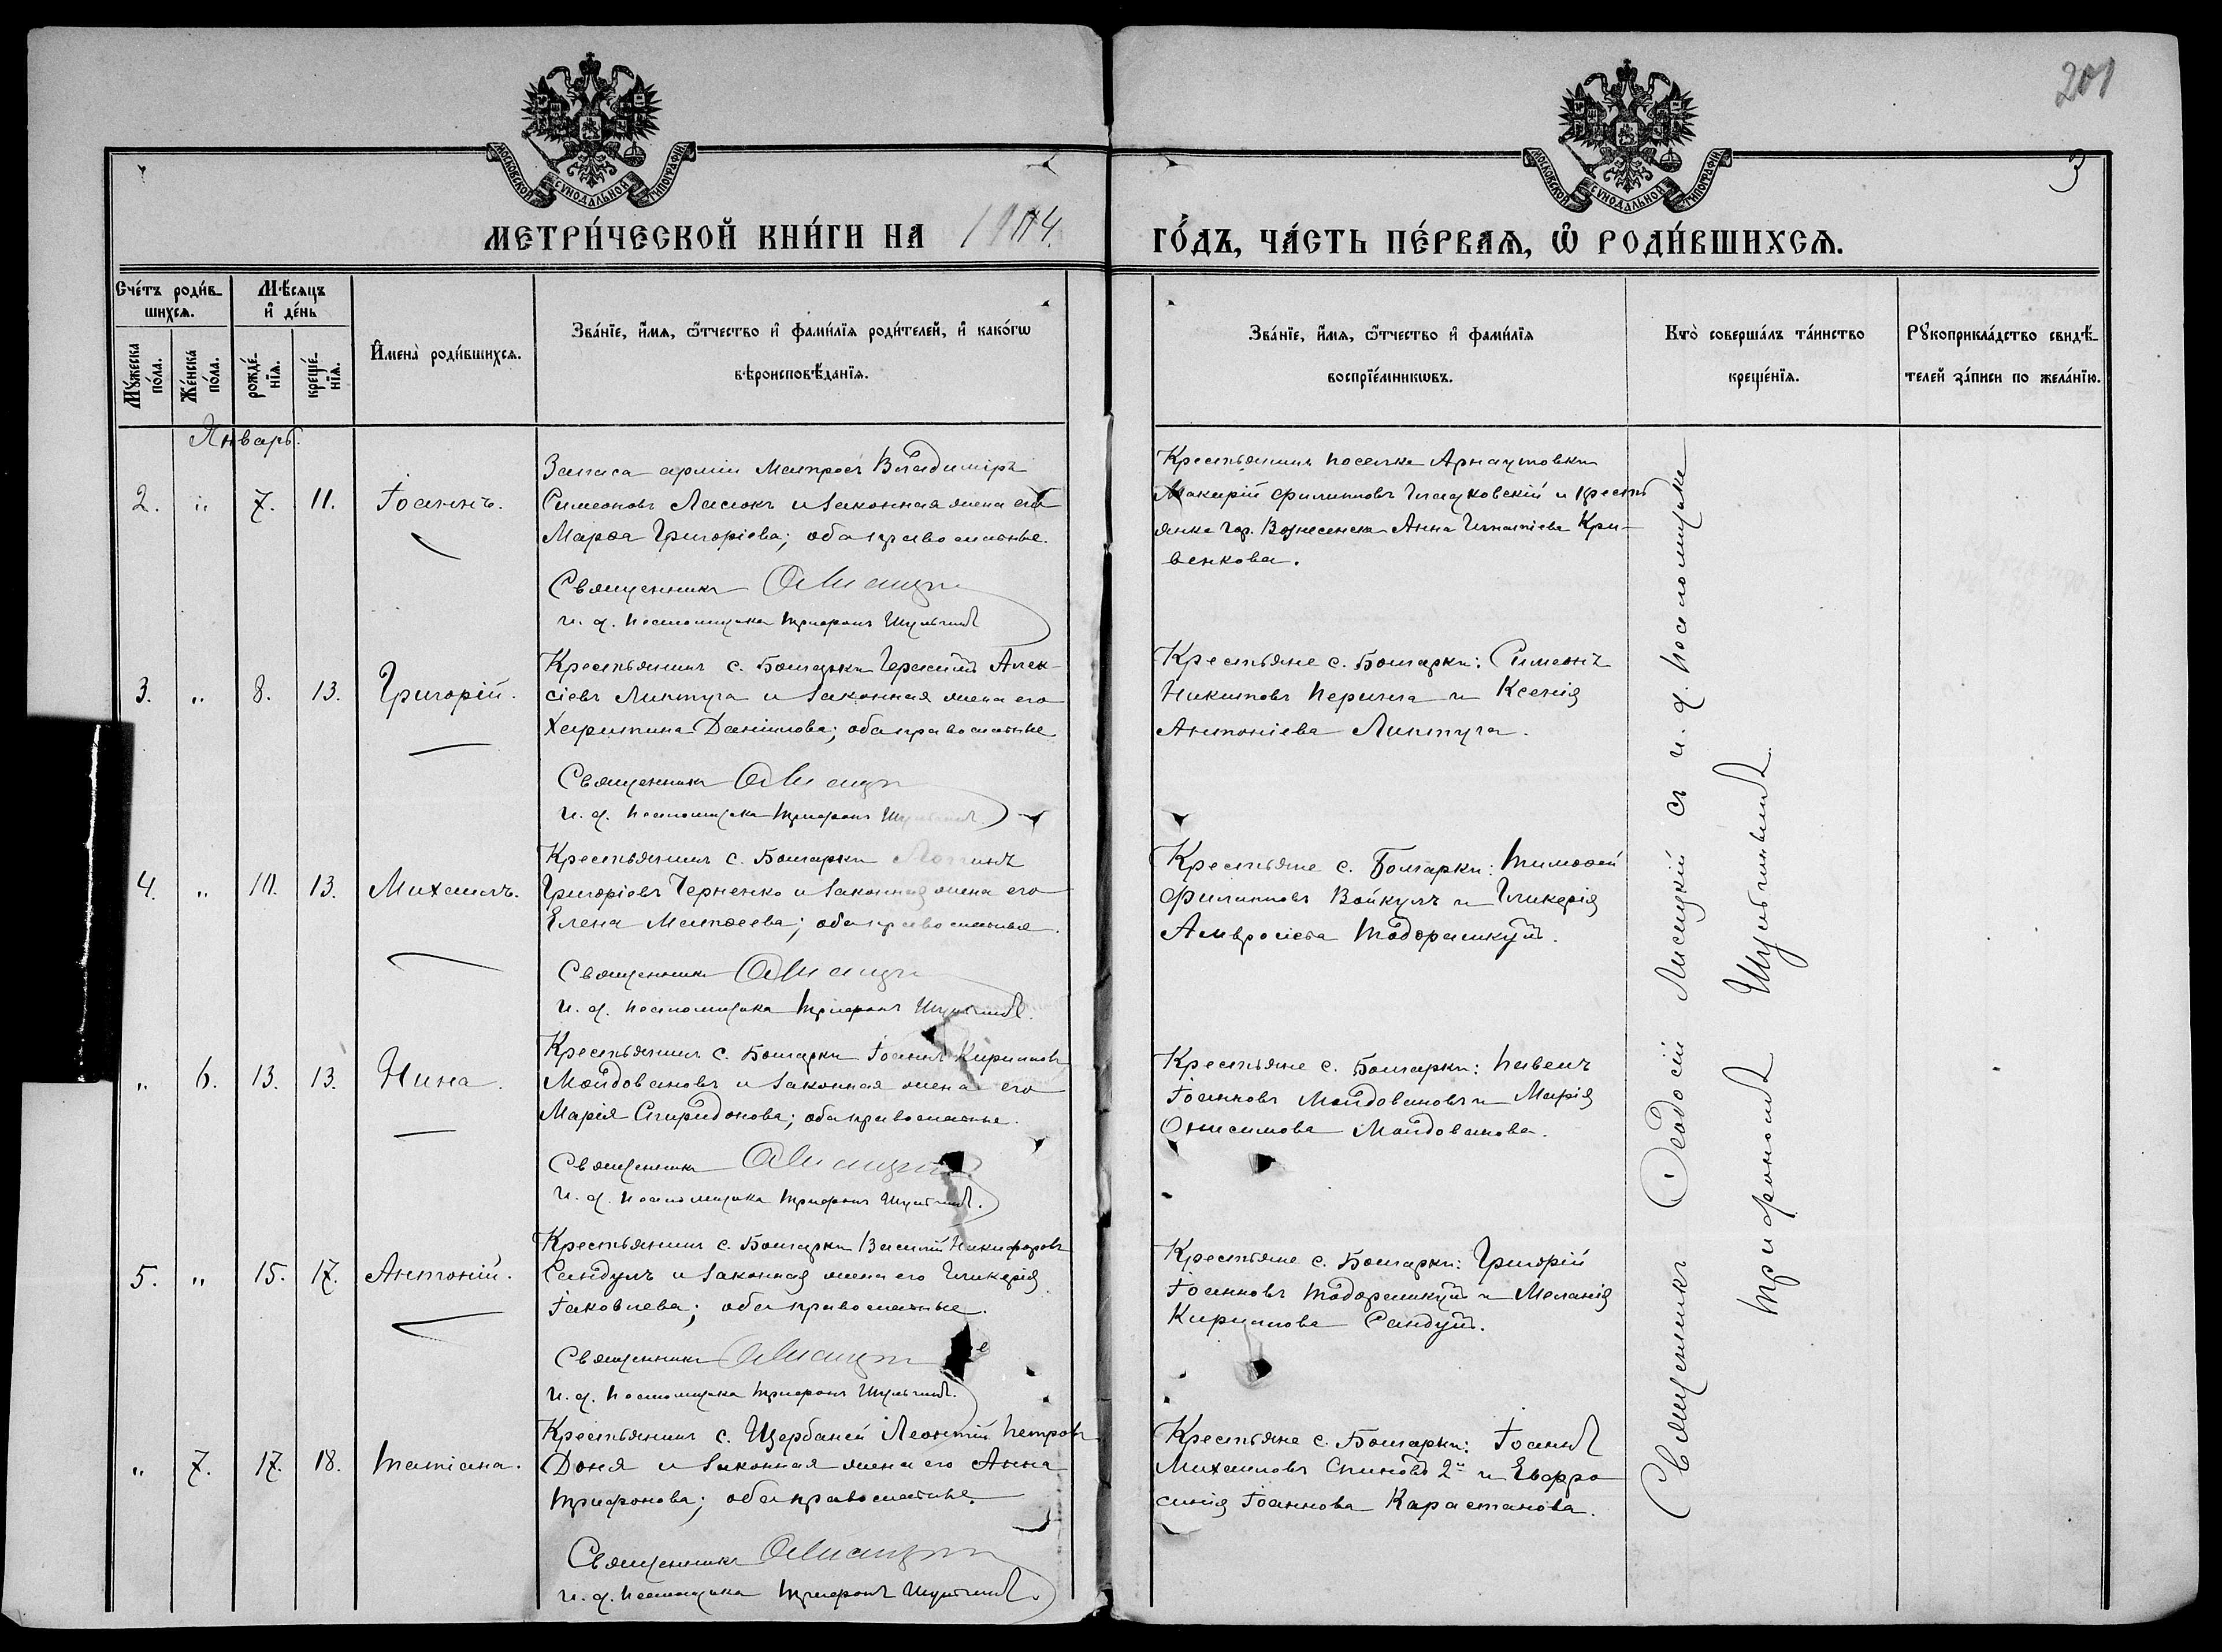 201
3
МОСКОВСКОЙ СѴНОДАЛЬНОЙ ТИПОГРАФІИ
МОСКОВСКОЙ СѴНОДАЛЬНОЙ ТИПОГРАФІИ
МЕТРИ́ЧЕСКОЙ КНИ́ГИ НА 1904.
ГО́ДЪ, ЧА́СТЬ ПЕ́РВАѦ, Ѡ҆ РОДИ́ВШИХСѦ.
Сче́тъ роди́в-
шихсѧ.
Мꙋ́жеска по́ла.
Же́нска по́ла.
Мѣ́сѧцъ
и҆ де́нь
рожде́-
нїѧ.
креще́-
нїѧ.
И҆мена̀ роди́вшихсѧ.
Зва́нїе, и҆́мѧ, ѻ҆́тчество и҆ фами́лїѧ роди́телей, и҆ како́гѡ
вѣроисповѣ́данїѧ.
Зва́нїе, и҆́мѧ, ѻ҆́тчество и҆ фами́лїѧ
воспрїе́мникѡвъ.
Кто̀ соверша́лъ та́инство
креще́нїѧ.
Рꙋкоприкла́дство свидѣ́-
телей за́писи по жела́нїю.
Январь.
2. " 7. 11. Іоаннъ.
Запаса арміи матросъ Владиміръ
Симеоновъ Ласюкъ и законная жена его
Марѳа Григоріева; оба православные.
Священникъ
и. д. псаломщика Трифонъ Шульгинъ
Крестьянинъ поселка Арнаутовки
Макарій Филипповъ и крестья
янка гор. Вознесенска Анна Игнатіева Кри-
венкова.
3. " 8. 13. Григорій.
Крестьянинъ с. Болгарки Герасимъ Алек-
сіевъ Липтуга и законная жена его
Харитина Даніилова; оба православные
Священникъ
и. д. псаломщика Трифонъ Шульгинъ.
Крестьяне с. Болгарки: Симеонъ
Никитовъ Перинга и Ксенія
Антоніева Липтуга.
4. " 10. 13. Михаилъ.
Крестьянинъ с. Болгарки Логгинъ
Григоріевъ Черненко и законная жена его
Елена Матѳеева; оба православные.
Священникъ
и. д. псаломщика Трифонъ Шульгинъ.
Крестьяне с. Болгарки: Тимоѳей
Филипповъ Войкулъ и Гликерія
Амвросіева Тодорашкулъ.
" 6. 13. 13. Нина.
Крестьянинъ с. Болгарки Іоаннъ Кирилловъ
Молдовановъ и законная жена его
Марія Спиридонова; оба православные.
Священникъ
и. д. псаломщика Трифонъ Шульгинъ.
Крестьяне с. Болгарки: Павелъ
Іоанновъ Молдовановъ и Марія
Онисимова Молдованова.
5. " 15. 17. Антоній.
Крестьянинъ с. Болгарки Василій Никифоровъ
Сандулъ и законная жена его Гликерія
Іаковлева; оба православные.
Священникъ
и. д. псаломщика Трифонъ Шульгинъ.
Крестьяне с. Болгарки: Григорій
Іоанновъ Тодорашкулъ и Меланія
Кириллова Сандулъ.
" 7. 17. 18. Татіана.
Крестьянинъ с. Щербаней Леонтій Петровъ
Доня и законная жена его Анна
Трифонова; оба православные.
Священникъ
и. д. псаломщика Трифонъ Шульгинъ.
Крестьяне с. Болгарки: Іоаннъ
Михаиловъ Спиновъ 2й и Евфро
синія Іоаннова Карастанова.
Священникъ Ѳеодосій Лисицкій съ и. д. псаломщика
Трифономъ Шульгинымъ